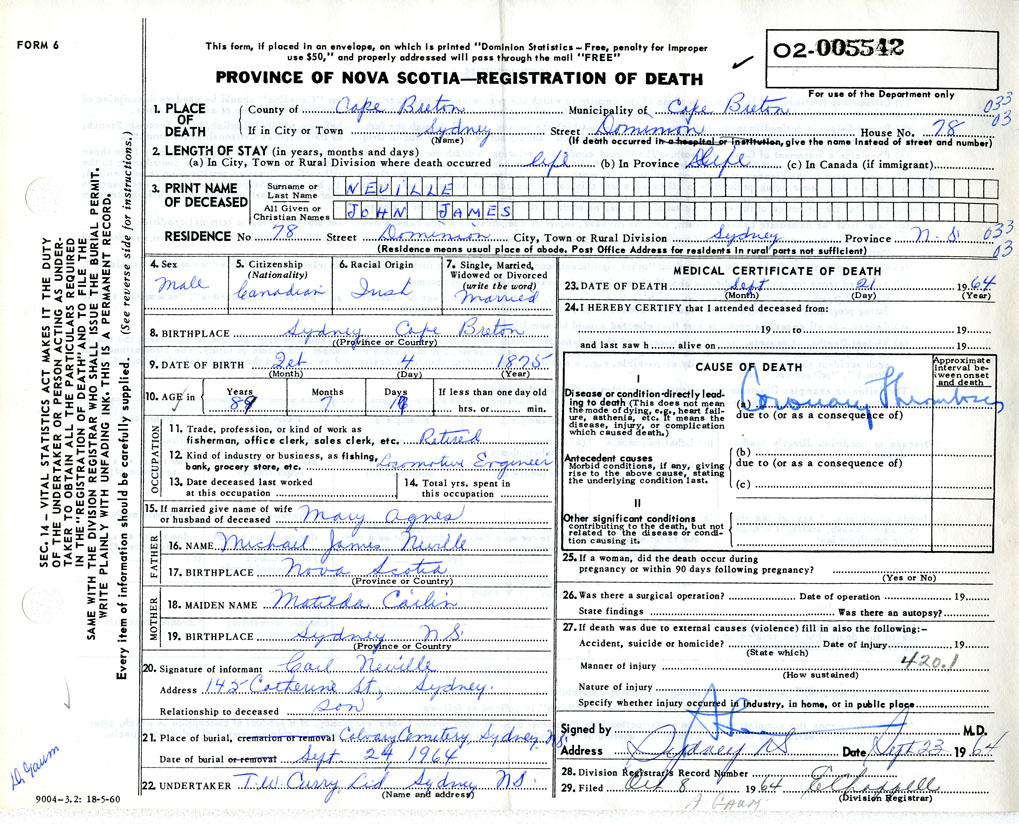 FORM 6
This form, if placed in an envelope, on which is printed "Dominion Statistics – Free, penalty for improper
use $50," and properly addressed will pass through the mail "FREE"
PROVINCE OF NOVA SCOTIA—REGISTRATION OF DEATH
02-005542
For use of the Department only
033
03
1. PLACE OF DEATH
County of Cape Breton Municipality of Cape Breton
If in City or Town Sydney Street Dominion House No. 78
(Name) (If death occurred in a hospital or institution, give the name instead of street and number)
2. LENGTH OF STAY (in years, months and days)
(a) In City, Town or Rural Division where death occurred Life (b) In Province Life (c) In Canada (if immigrant)
3. PRINT NAME OF DECEASED
Surname or Last Name NEVILLE
All Given or Christian Names JOHN JAMES
RESIDENCE No 78 Street Dominion City, Town or Rural Division Sydney Province N.S.
(Residence means usual place of abode. Post Office Address for residents in rural parts not sufficient)
033
03
4. Sex
Male
5. Citizenship (Nationality)
Canadian
6. Racial Origin
Irish
7. Single, Married, Widowed or Divorced (write the word)
Married
8. BIRTHPLACE Sydney Cape Breton
(Province or Country)
9. DATE OF BIRTH 4 1875
(Month) (Day) (Year)
10. AGE in
Years Months Days If less than one day old
89 7 hrs. or min.
OCCUPATION
11. Trade, profession, or kind of work as
fisherman, office clerk, sales clerk, etc. Retired
12. Kind of industry or business, as fishing,
bank, grocery store, etc. Locomotive Engineer
13. Date deceased last worked
at this occupation
14. Total yrs. spent in
this occupation
15. If married give name of wife
or husband of deceased Mary Agnes
FATHER
16. NAME Michael James Neville
17. BIRTHPLACE Nova Scotia
(Province or Country)
MOTHER
18. MAIDEN NAME Matilda
19. BIRTHPLACE Sydney NS
(Province or Country)
20. Signature of informant Neville
Address 145 Catherine St, Sydney.
Relationship to deceased son
21. Place of burial, cremation or removal Calvary Cemetery, Sydney, NS.
Date of burial or removal Sept. 24, 1964
22. UNDERTAKER T.W. Curry Ltd Sydney NS.
(Name and address)
9004–3.2: 18-5-60
SEC. 14 – VITAL STATISTICS ACT MAKES IT THE DUTY
OF THE UNDERTAKER OR PERSON ACTING AS UNDER-
TAKER TO OBTAIN ALL THE PARTICULARS REQUIRED
IN THE "REGISTRATION OF DEATH" AND TO FILE THE
SAME WITH THE DIVISION REGISTRAR WHO SHALL ISSUE THE BURIAL PERMIT.
WRITE PLAINLY WITH UNFADING INK. THIS IS A PERMANENT RECORD.
Every item of information should be carefully supplied. (See reverse side for instructions.)
MEDICAL CERTIFICATE OF DEATH
23. DATE OF DEATH Sept 21 1964
(Month) (Day) (Year)
24. I HEREBY CERTIFY that I attended deceased from:
19 to 19
and last saw h alive on 19
CAUSE OF DEATH
Approximate interval between onset and death
I
Disease or condition directly leading to death (This does not mean the mode of dying, e.g., heart failure, asthenia, etc. It means the disease, injury, or complication which caused death.)
(a) Coronary Thrombosis
due to (or as a consequence of)
Antecedent causes
Morbid conditions, if any, giving rise to the above cause, stating the underlying condition last.
(b)
due to (or as a consequence of)
(c)
II
Other significant conditions
contributing to the death, but not related to the disease or condition causing it.
25. If a woman, did the death occur during
pregnancy or within 90 days following pregnancy?
(Yes or No)
26. Was there a surgical operation? Date of operation 19
State findings Was there an autopsy?
27. If death was due to external causes (violence) fill in also the following:–
Accident, suicide or homicide? Date of injury 19
(State which)
420.1
Manner of injury
(How sustained)
Nature of injury
Specify whether injury occurred in industry, in home, or in public place
Signed by M.D.
Address Sydney NS Date Sept 23 1964
28. Division Registrar's Record Number
29. Filed Oct 8 1964 E Chappell
(Division Registrar)